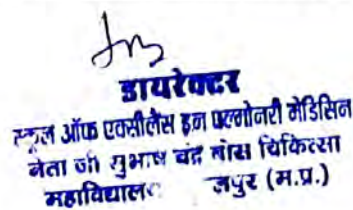 डायरेक्टर
स्कूल ऑफ एक्सीलेंस इन पल्मोनरी मेडिसिन
नेता जी सुभाष चंद्र बोस चिकित्सा
महाविद्यालय जपुर (म.प्र.)